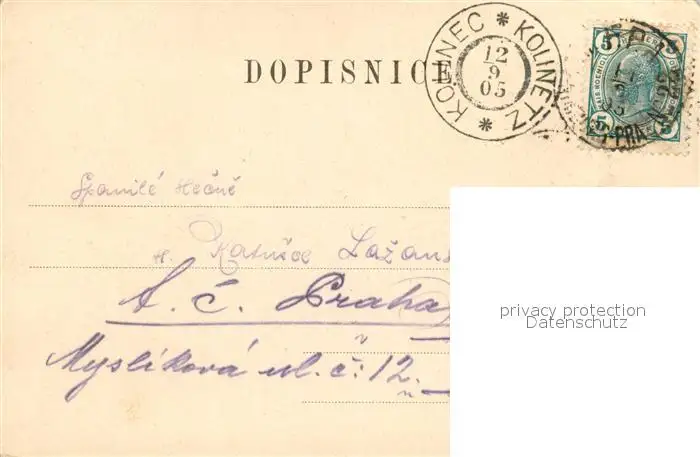 DOPISNICE
KOLINEC * KOLINETZ *
12
9
05
5 5
5 5
Spanilé slečně
sl. Katušce Lažans
A. č. Praha
Myslíková ul. č. 12.
privacy protection
Datenschutz